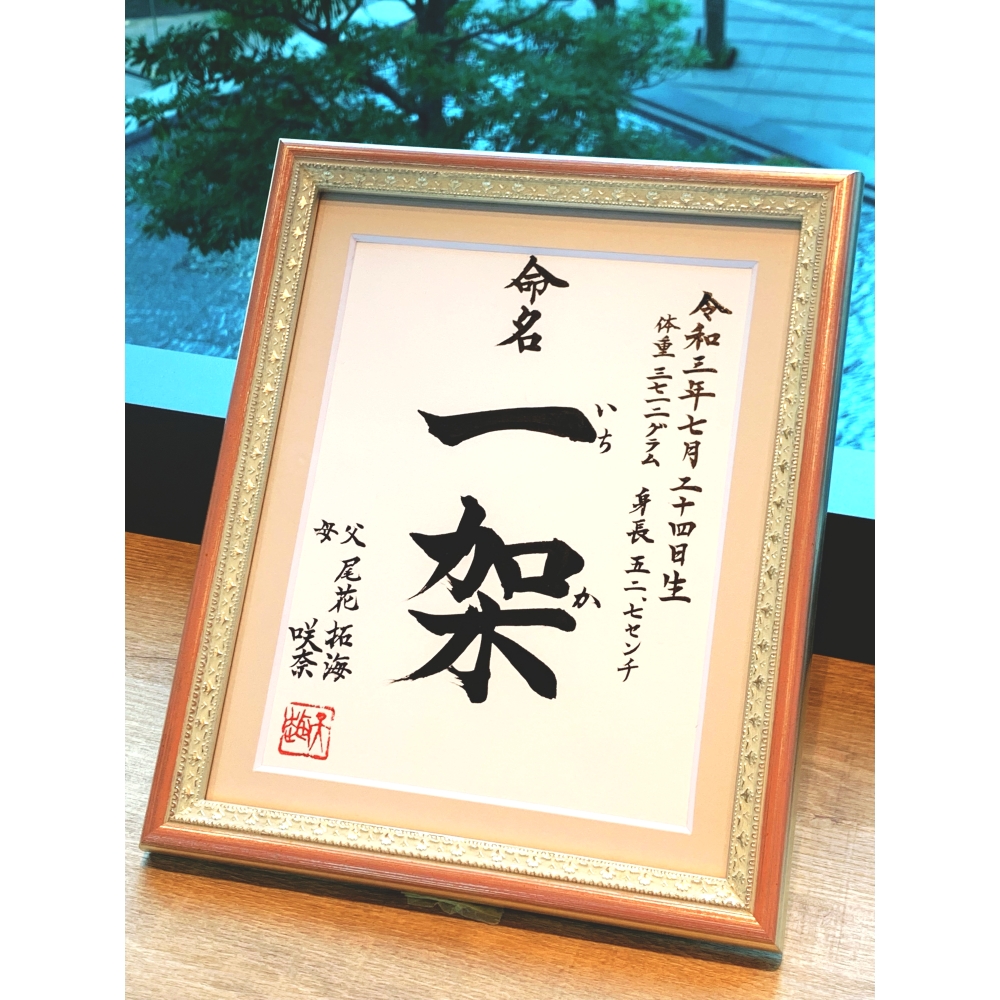 令和三年七月二十四日生
体重 三七一二グラム 身長 五二、七センチ
命名
一架
いちか
父 尾花 拓海
母 咲奈